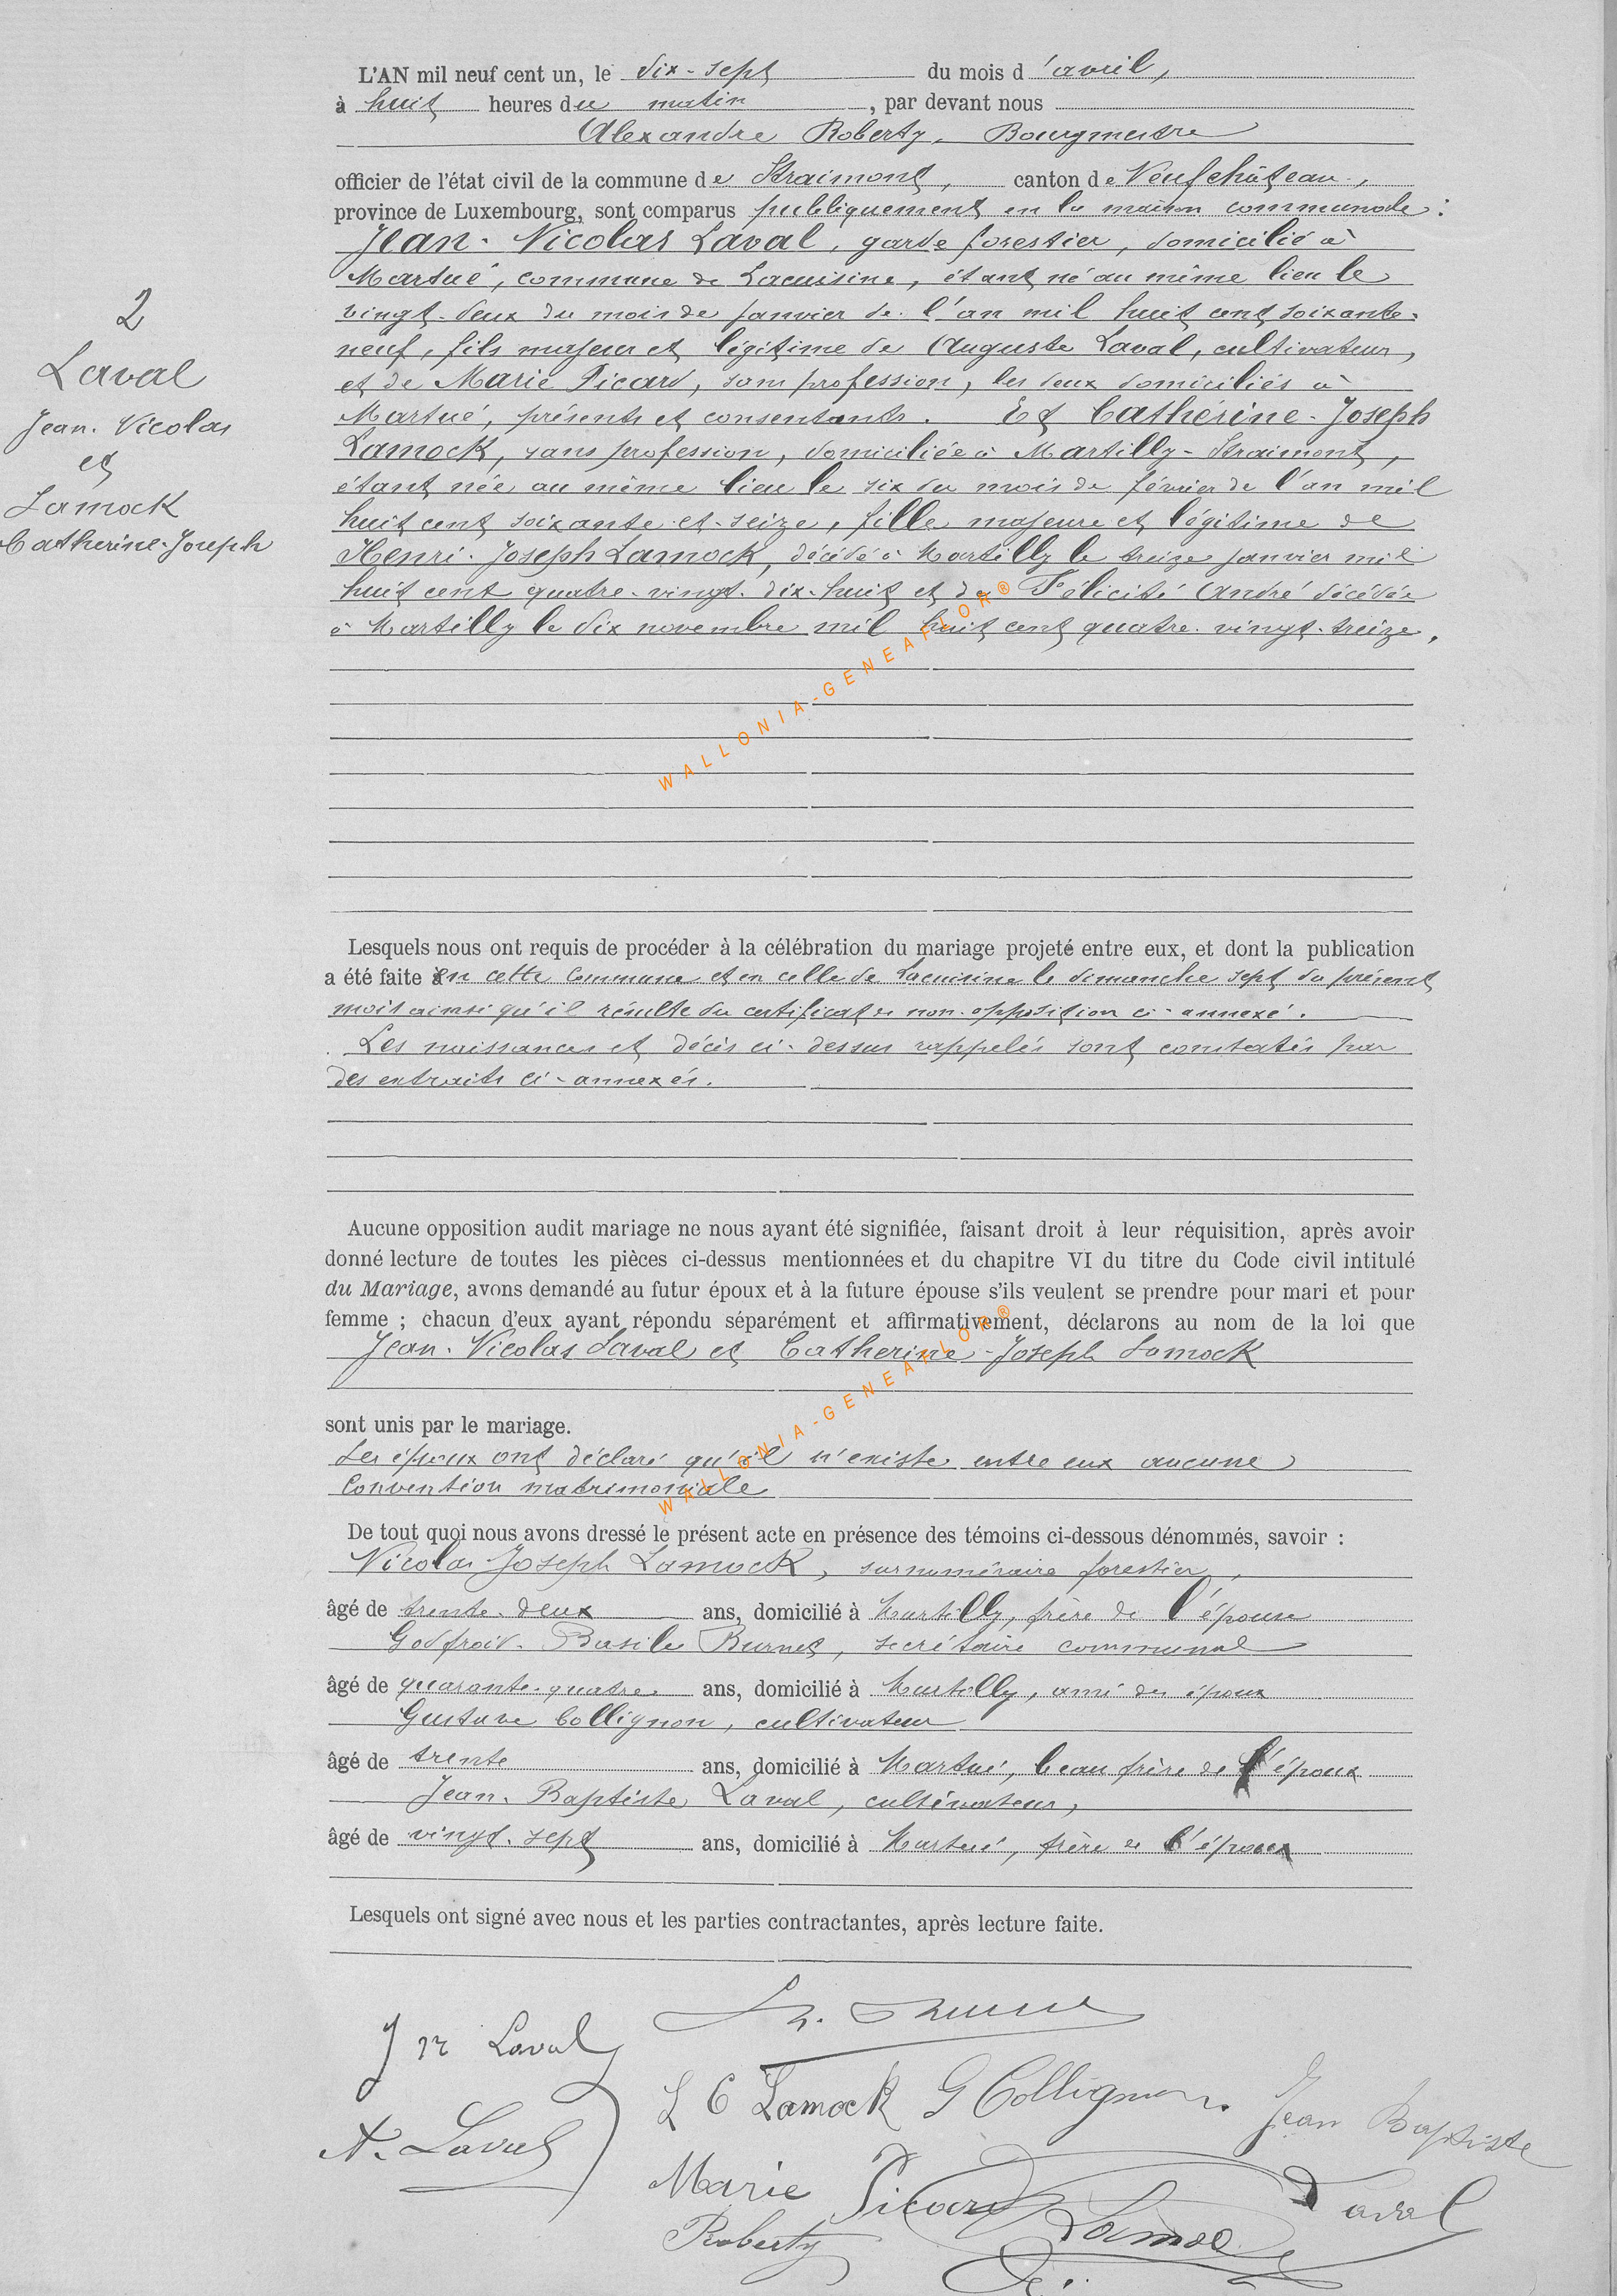 L'AN mil neuf cent un, le dix-sept du mois d'avril,
à huit heures du matin, par devant nous
Alexandre Roberty, Bourgmestre
officier de l'état civil de la commune de Straimont, canton de Neufchâteau,
province de Luxembourg, sont comparus publiquement en la maison communale :
Jean-Nicolas Laval, garde forestier, domicilié à
Martué, commune de Lacuisine, étant né au même lieu le
vingt-deux du mois de janvier de l'an mil huit cent soixante-
neuf, fils majeur et légitime de Auguste Laval, cultivateur,
et de Marie Picard, sans profession, les deux domiciliés à
Martué, présents et consentants. Et Cathérine-Joseph
Lamock, sans profession, domiciliée à Martilly-Straimont,
étant née au même lieu le six du mois de février de l'an mil
huit cent soixante-et-seize, fille majeure et légitime de
Henri-Joseph Lamock, décédé à Martilly le treize janvier mil
huit cent quatre-vingt-dix-huit et de Félicité André décédée
à Martilly le dix novembre mil huit cent quatre-vingt-treize.
2
Laval
Jean-Nicolas
et
Lamock
Catherine-Joseph
WALLONIA-GENEAFLOR®
Lesquels nous ont requis de procéder à la célébration du mariage projeté entre eux, et dont la publication
a été faite en cette commune et en celle de Lacuisine le dimanche sept du présent
mois ainsi qu'il résulte du certificat de non-opposition ci-annexé.
Les naissances et décès ci-dessus rappelés sont constatés par
des extraits ci-annexés.
Aucune opposition audit mariage ne nous ayant été signifiée, faisant droit à leur réquisition, après avoir
donné lecture de toutes les pièces ci-dessus mentionnées et du chapitre VI du titre du Code civil intitulé
du Mariage, avons demandé au futur époux et à la future épouse s'ils veulent se prendre pour mari et pour
femme ; chacun d'eux ayant répondu séparément et affirmativement, déclarons au nom de la loi que
Jean-Nicolas Laval et Catherine-Joseph Lamock
WALLONIA-GENEAFLOR®
sont unis par le mariage.
Les époux ont déclaré qu'il n'existe entre eux aucune
convention matrimoniale
De tout quoi nous avons dressé le présent acte en présence des témoins ci-dessous dénommés, savoir :
Nicolas-Joseph Lamock, surnuméraire forestier,
âgé de trente-deux ans, domicilié à Martilly, frère de l'épouse
Godfroid-Basile Burnet, secrétaire communal
âgé de quarante-quatre ans, domicilié à Martilly, ami des époux
Gustave Collignon, cultivateur
âgé de trente ans, domicilié à Martué, beau frère de l'époux
Jean-Baptiste Laval, cultivateur,
âgé de vingt-sept ans, domicilié à Martué, frère de l'époux
Lesquels ont signé avec nous et les parties contractantes, après lecture faite.
J N Laval
A. Laval
L C Lamock G Collignon. Jean Baptiste
Marie Picard Laval
Roberty